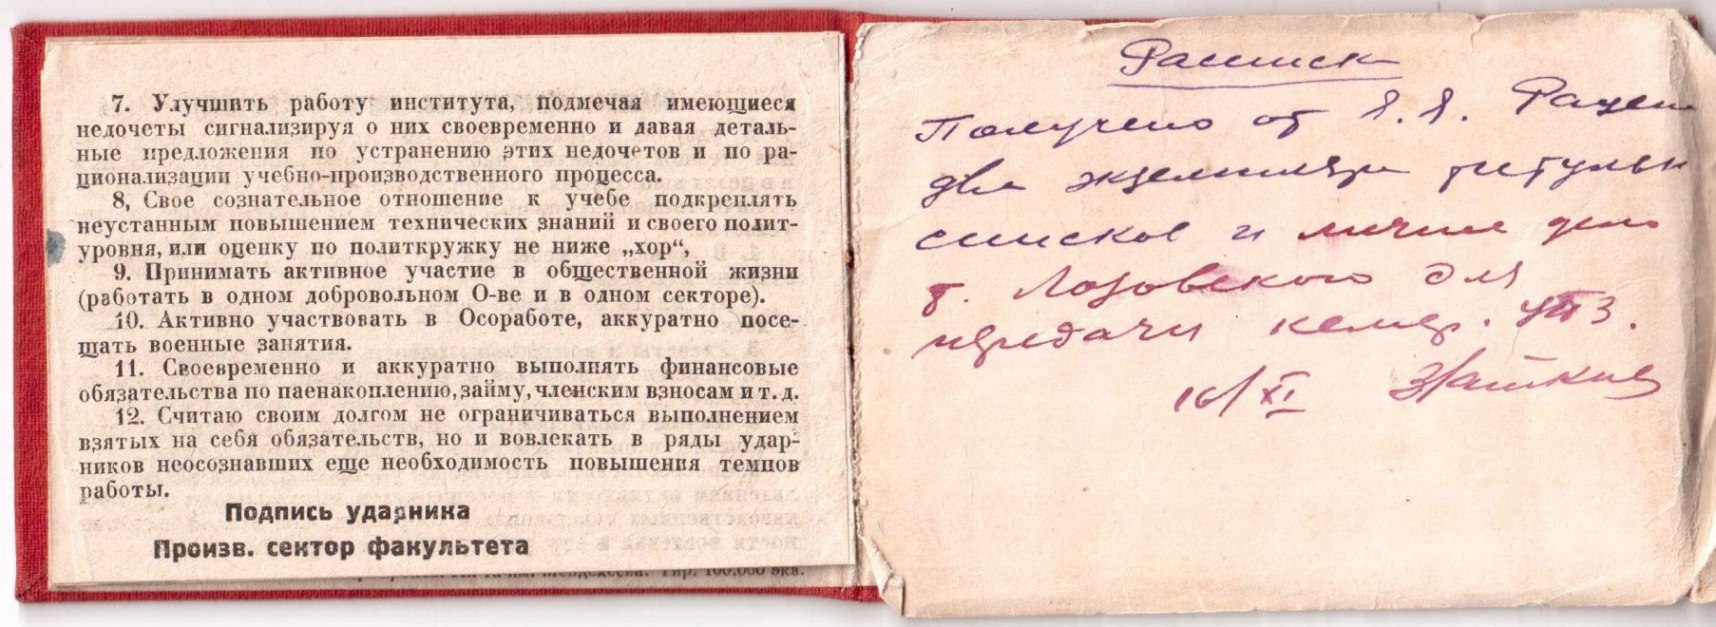 7. Улучшить работу института, подмечая имеющиеся
недочеты сигнализируя о них своевременно и давая деталь-
ные предложения по устранению этих недочетов и по ра-
ционализации учебно-производственного процесса.
8, Свое сознательное отношение к учебе подкреплять
неустанным повышением технических знаний и своего полит-
уровня, или оценку по политкружку не ниже „хор“,
9. Принимать активное участие в общественной жизни
(работать в одном добровольном О-ве и в одном секторе).
10. Активно участвовать в Осоработе, аккуратно посе-
щать военные занятия.
11. Своевременно и аккуратно выполнять финансовые
обязательства по паенакоплению, займу, членским взносам и т. д.
12. Считаю своим долгом не ограничиваться выполнением
взятых на себя обязательств, но и вовлекать в ряды удар-
ников неосознавших еще необходимость повышения темпов
работы.
Подпись ударника
Произв. сектор факультета
Тир. 100.000 экз.
Расписк
Получено от Я. Я.
два экземпляра титульн
списков и личное дело
т. Лозовского для
передачи
16/XI